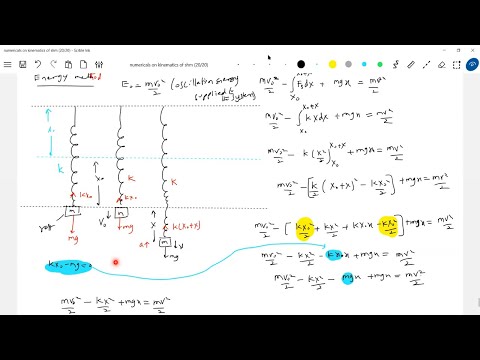 numericals on kinematics of shm (20/20) - Scribble Ink
numericals on kinematics of shm (20/20)
Energy method
E₀ = mv₀²/2 (oscillation energy supplied to system)
k
k
k
x₀
kx₀
kx₀
k(x₀+x)
m
m
m
v₀
mg
mg
mg
x
a
v
kx₀-mg=0
mv₀²/2 - kx²/2 + mgx = mv²/2
mv₀²/2 - ∫ F₀dx + mgx = mv²/2
x₀
mv₀²/2 - ∫ kxdx + mgx = mv²/2
x₀+x
x₀
mv₀²/2 - k (x²/2) + mgx = mv²/2
x₀+x
x₀
mv₀²/2 - [k/2 (x₀+x)² - kx₀²/2] + mgx = mv²/2
mv₀²/2 - [kx₀²/2 + kx²/2 + kx₀x - kx₀²/2] + mgx = mv²/2
mv₀²/2 - kx²/2 - kx₀x + mgx = mv²/2
mv₀²/2 - kx²/2 - mgx + mgx = mv²/2